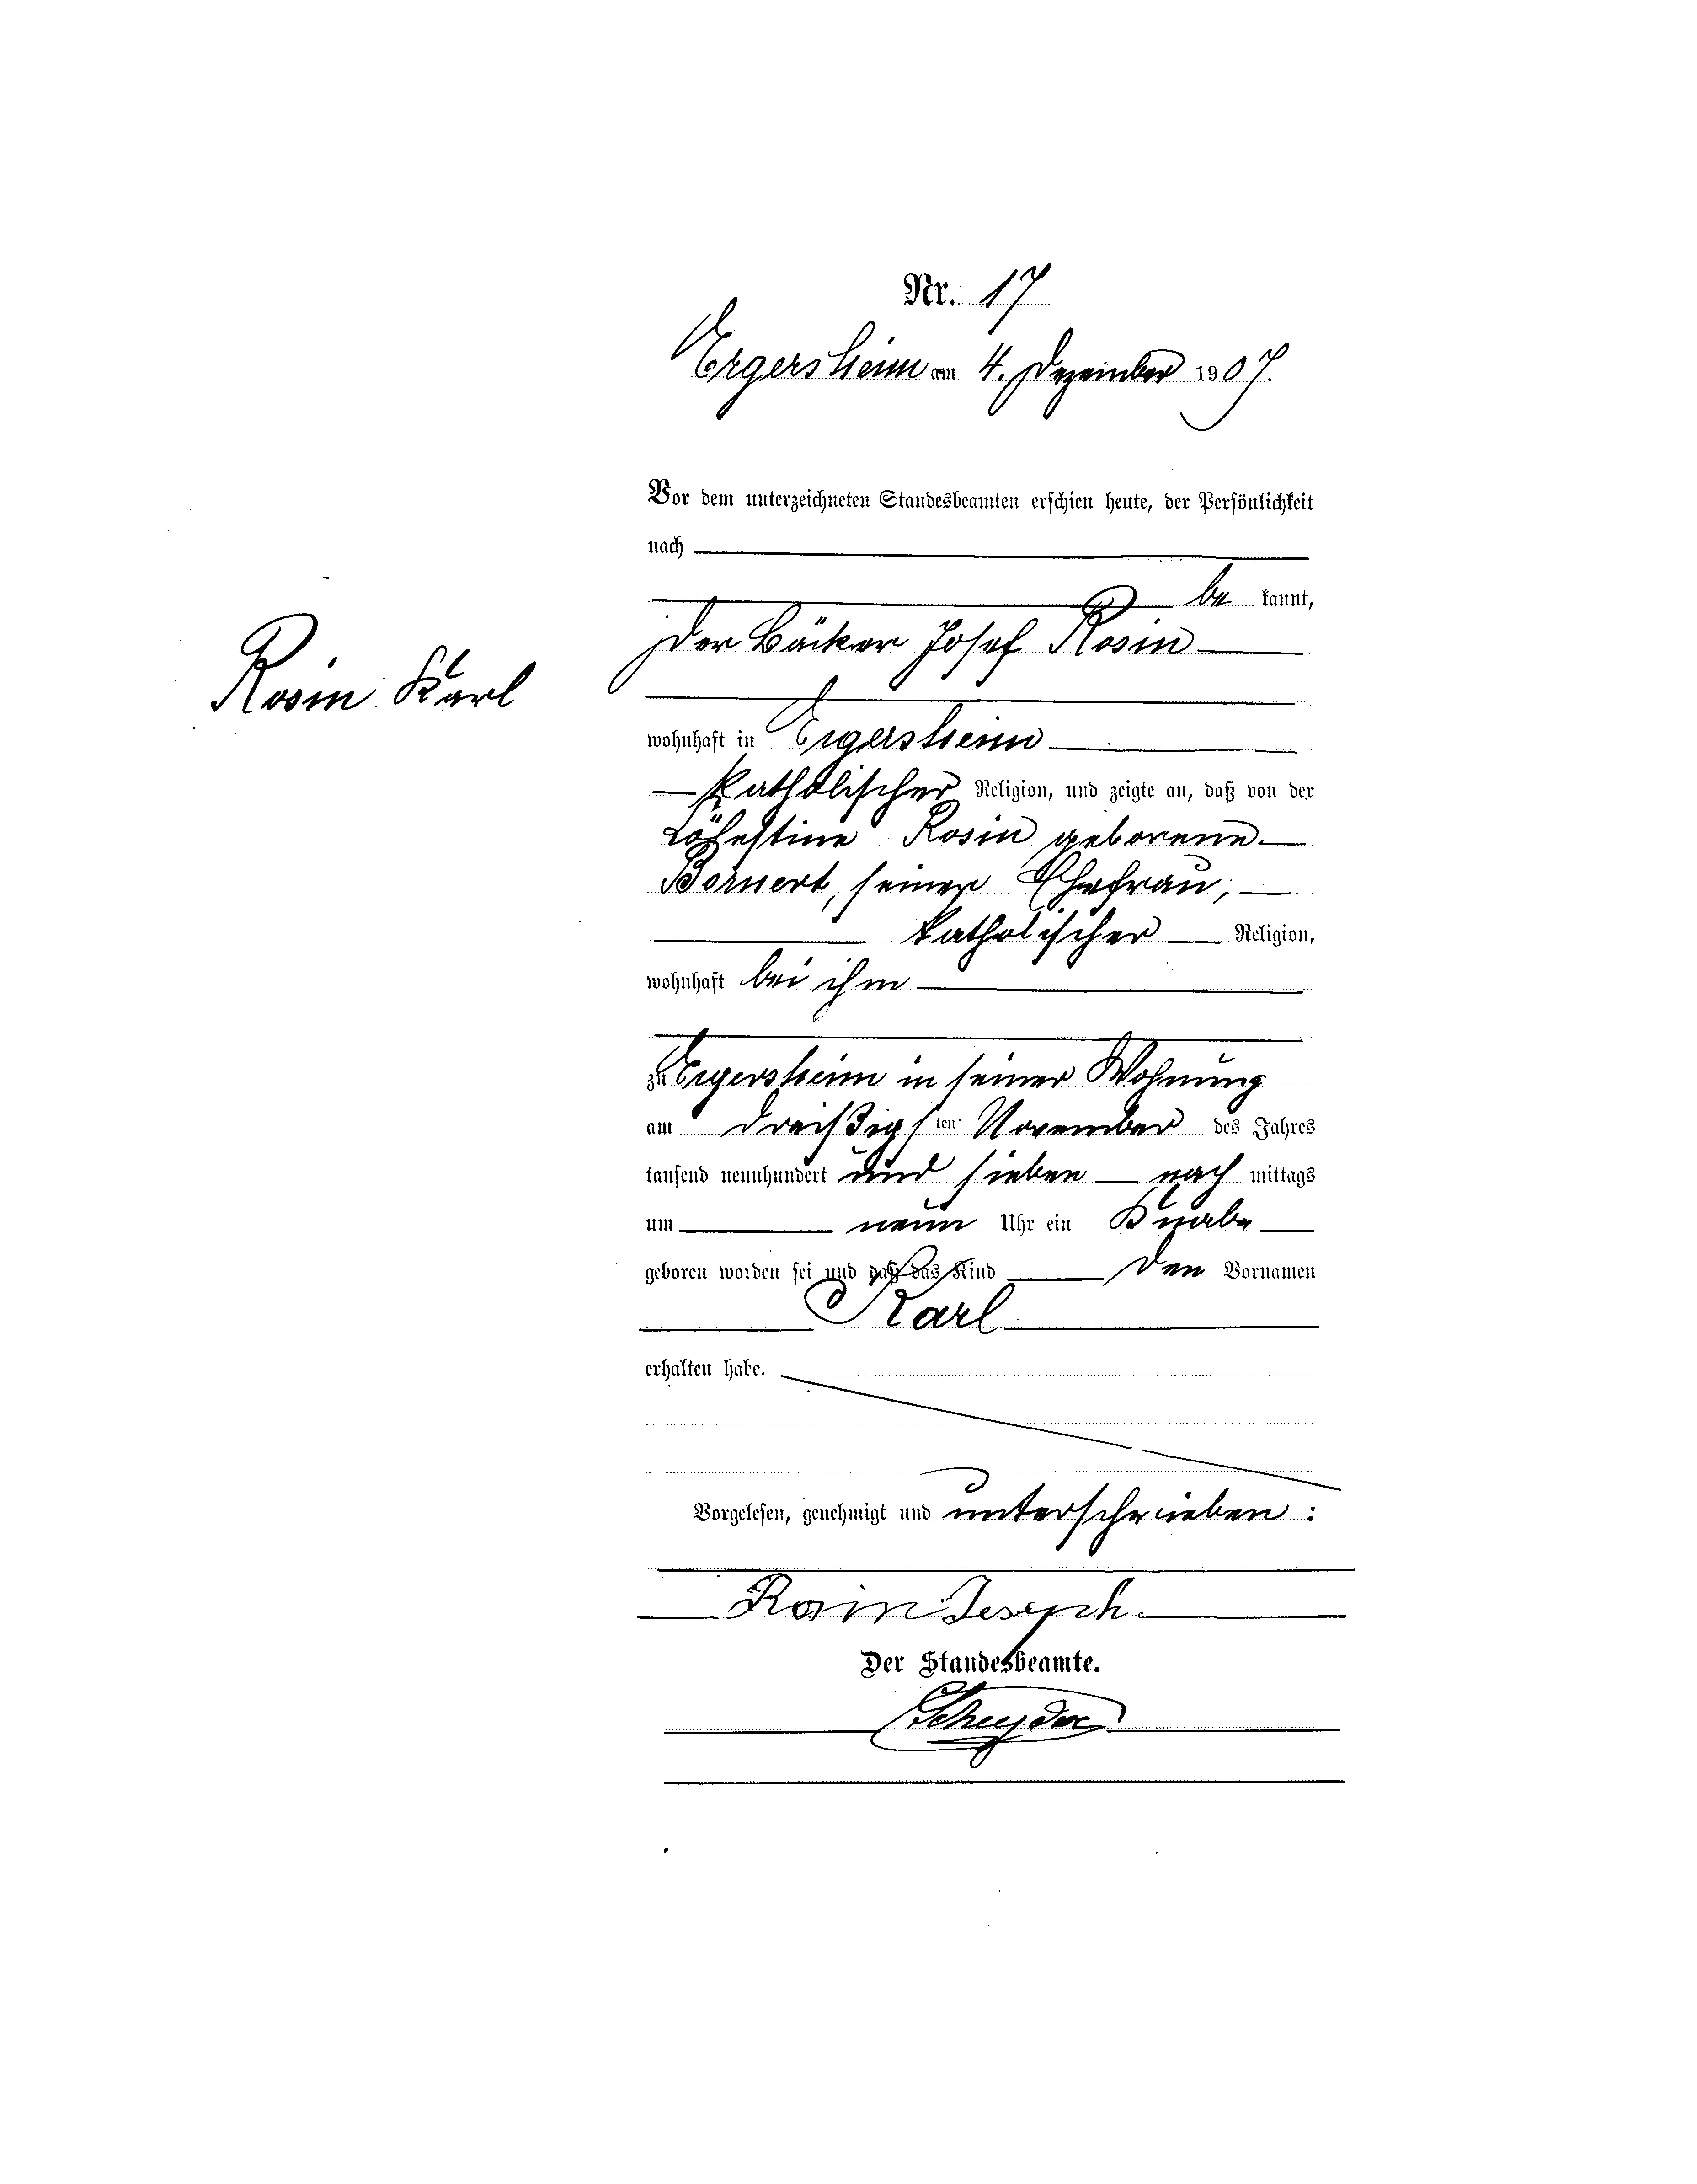 Nr. 17
Ergersheim am 4. Dezember 1907.
Vor dem unterzeichneten Standesbeamten erschien heute, der Persönlichkeit
nach
be kannt,
der Bäcker Josef Rosin
Rosin Karl
wohnhaft in Ergersheim
katholischer Religion, und zeigte an, daß von der
Cölestine Rosin geborene
Bornert, seiner Ehefrau,
katholischer Religion,
wohnhaft bei ihm
zu Ergersheim in seiner Wohnung
am dreißigsten November des Jahres
tausend neunhundert und sieben nach mittags
um neun Uhr ein Knabe
geboren worden sei und daß das Kind den Vornamen
Karl
erhalten habe.
Vorgelesen, genehmigt und unterschrieben :
Rosin Joseph
Der Standesbeamte.